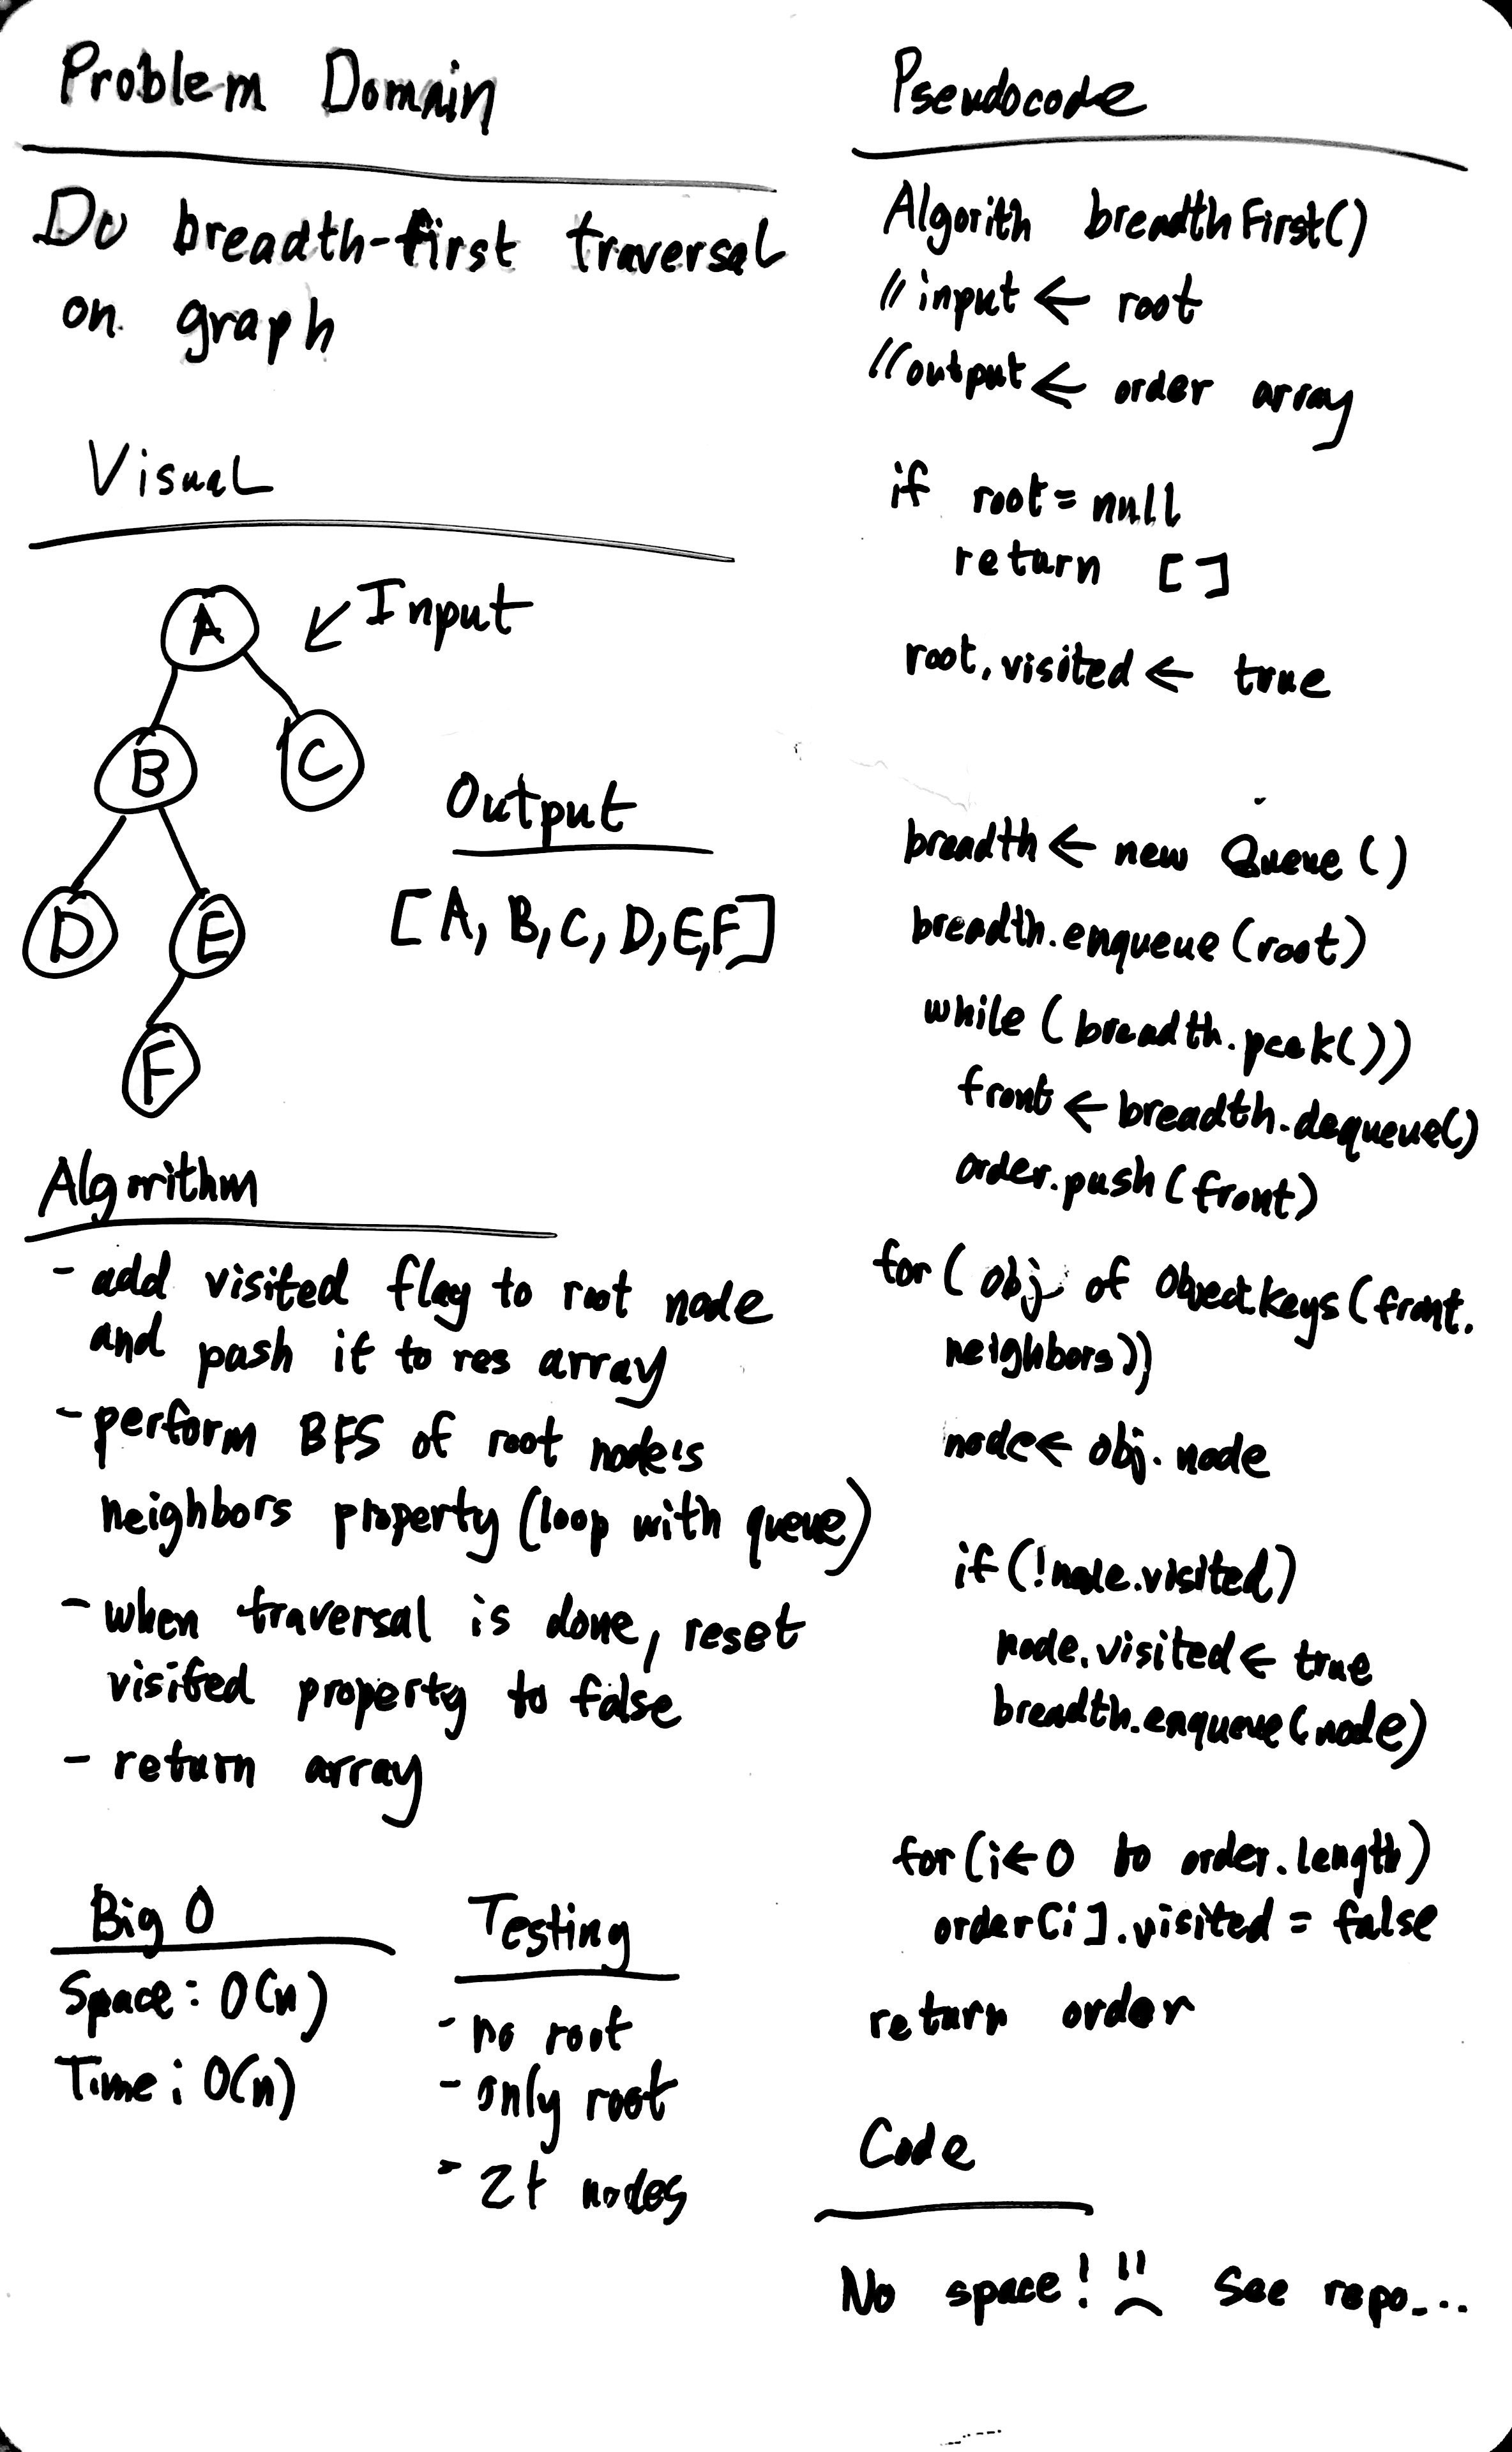 Problem Domain
Do breadth-first traversal
on graph
Visual
A
Input
B
C
D
E
F
Output
[A, B, C, D, E, F]
Algorithm
- add visited flag to root node
and push it to res array
- perform BFS of root node's
neighbors property (loop with queue)
- when traversal is done, reset
visited property to false
- return array
Big O
Space: O(n)
Time: O(n)
Testing
- no root
- only root
- 2+ nodes
Pseudocode
Algorith breadthFirst()
// input ← root
// output ← order array
if root = null
return []
root.visited ← true
breadth ← new Queue()
breadth.enqueue(root)
while (breadth.peek())
front ← breadth.dequeue()
order.push(front)
for (obj of Object.keys(front.
neighbors))
node ← obj.node
if (!node.visited)
node.visited ← true
breadth.enqueue(node)
for (i ← 0 to order.length)
order[i].visited = false
return order
Code
No space! See repo...